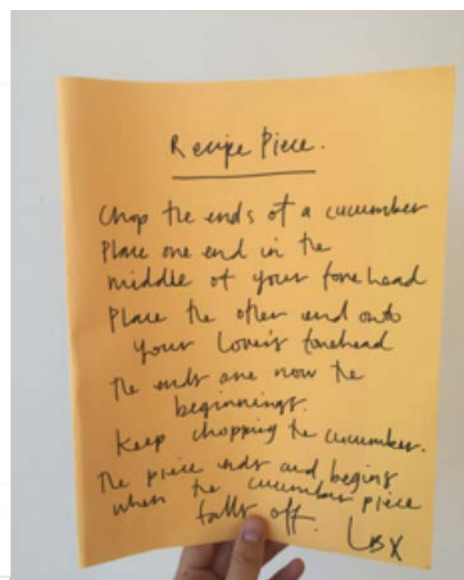 Recipe Piece.
Chop the ends of a cucumber
Place one end in the
middle of your forehead
Place the other end onto
your lover's forehead
The ends are now the
beginnings.
Keep chopping the cucumber.
The piece ends and begins
when the cucumber piece
falls off.
LBX